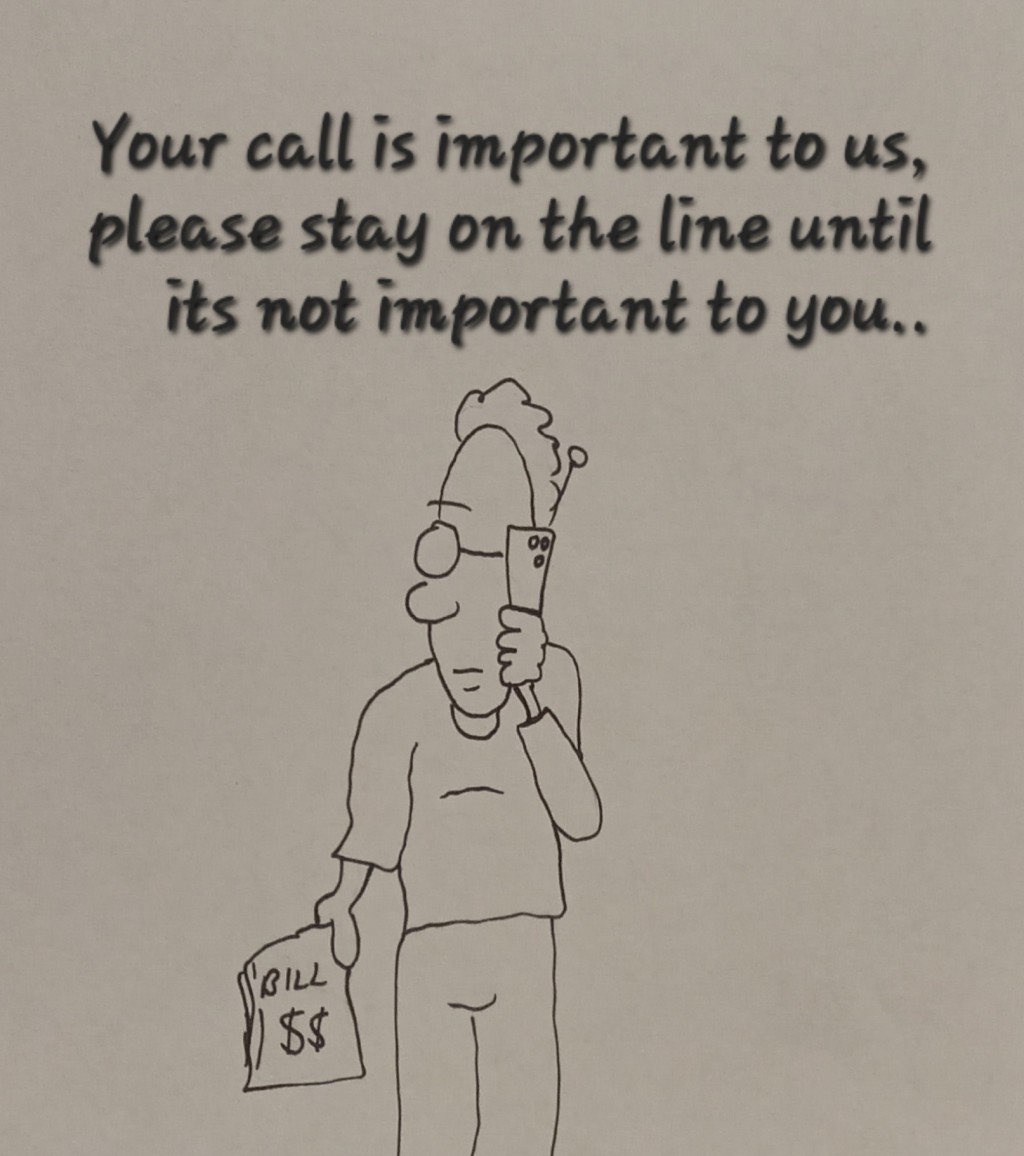 Your call is important to us,
please stay on the line until
its not important to you..
BILL
$$